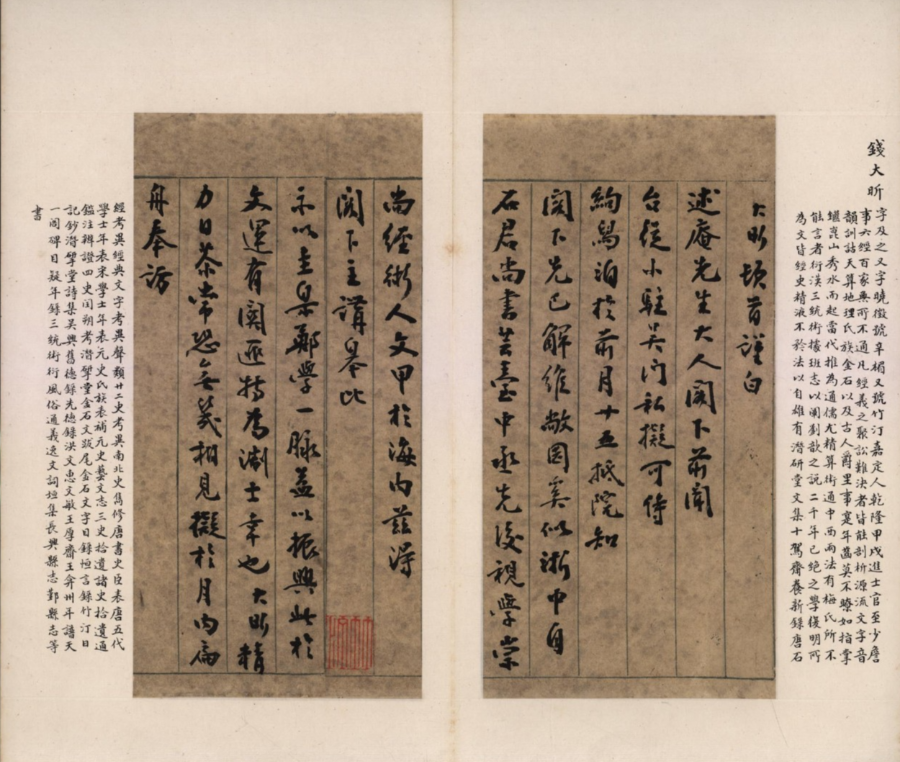 錢大昕
字及之又字曉徵號辛楣又號竹汀嘉定人乾隆甲戌進士官至少詹
事六經百家無所不通凡經義之聚訟難決者皆能剖析源流文字音
韻訓詁天算地理氏族金石以及古人爵里事蹟年齒莫不瞭如指掌
崑山秀水而起當代推為通儒尤精算術通中西兩法有梅氏所不
能言者衍漢三統術據班志以闡劉歆之說二千年已絕之學復明所
為文皆經史精液不矜法以自雄有潛研堂文集十駕齋養新錄唐石
大昕頓首謹白
述庵先生大人閣下前聞
台從小駐吳門私擬可待
絢舄泊於前月十五抵院知
閣下先已解維敝園矣似浙中自
石君尚書芸臺中丞先後視學崇
尚經術人文甲於海內茲得
閣下主講皋比
示以圭臬鄭學一脉益以振興此於
文運有關匪特為澍士幸也大昕精
力日茶常恐無幾相見擬於月內扁
舟奉訪
經考異經典文字考異聲類廿二史考異南北史雋修唐書史臣表唐五代
學士年表宋學士年表元史氏族表補元史藝文志三史拾遺諸史拾遺通
鑑注辨證四史閏朔考潛揅堂金石文跋尾金石文字目錄恒言錄竹汀日
記鈔潛揅堂詩集吳興舊德錄先德錄洪文惠文敏王厚齋王弇州年譜天
一閣碑目疑年錄三統術衍風俗通義逸文詞垣集長興縣志鄞縣志等
書